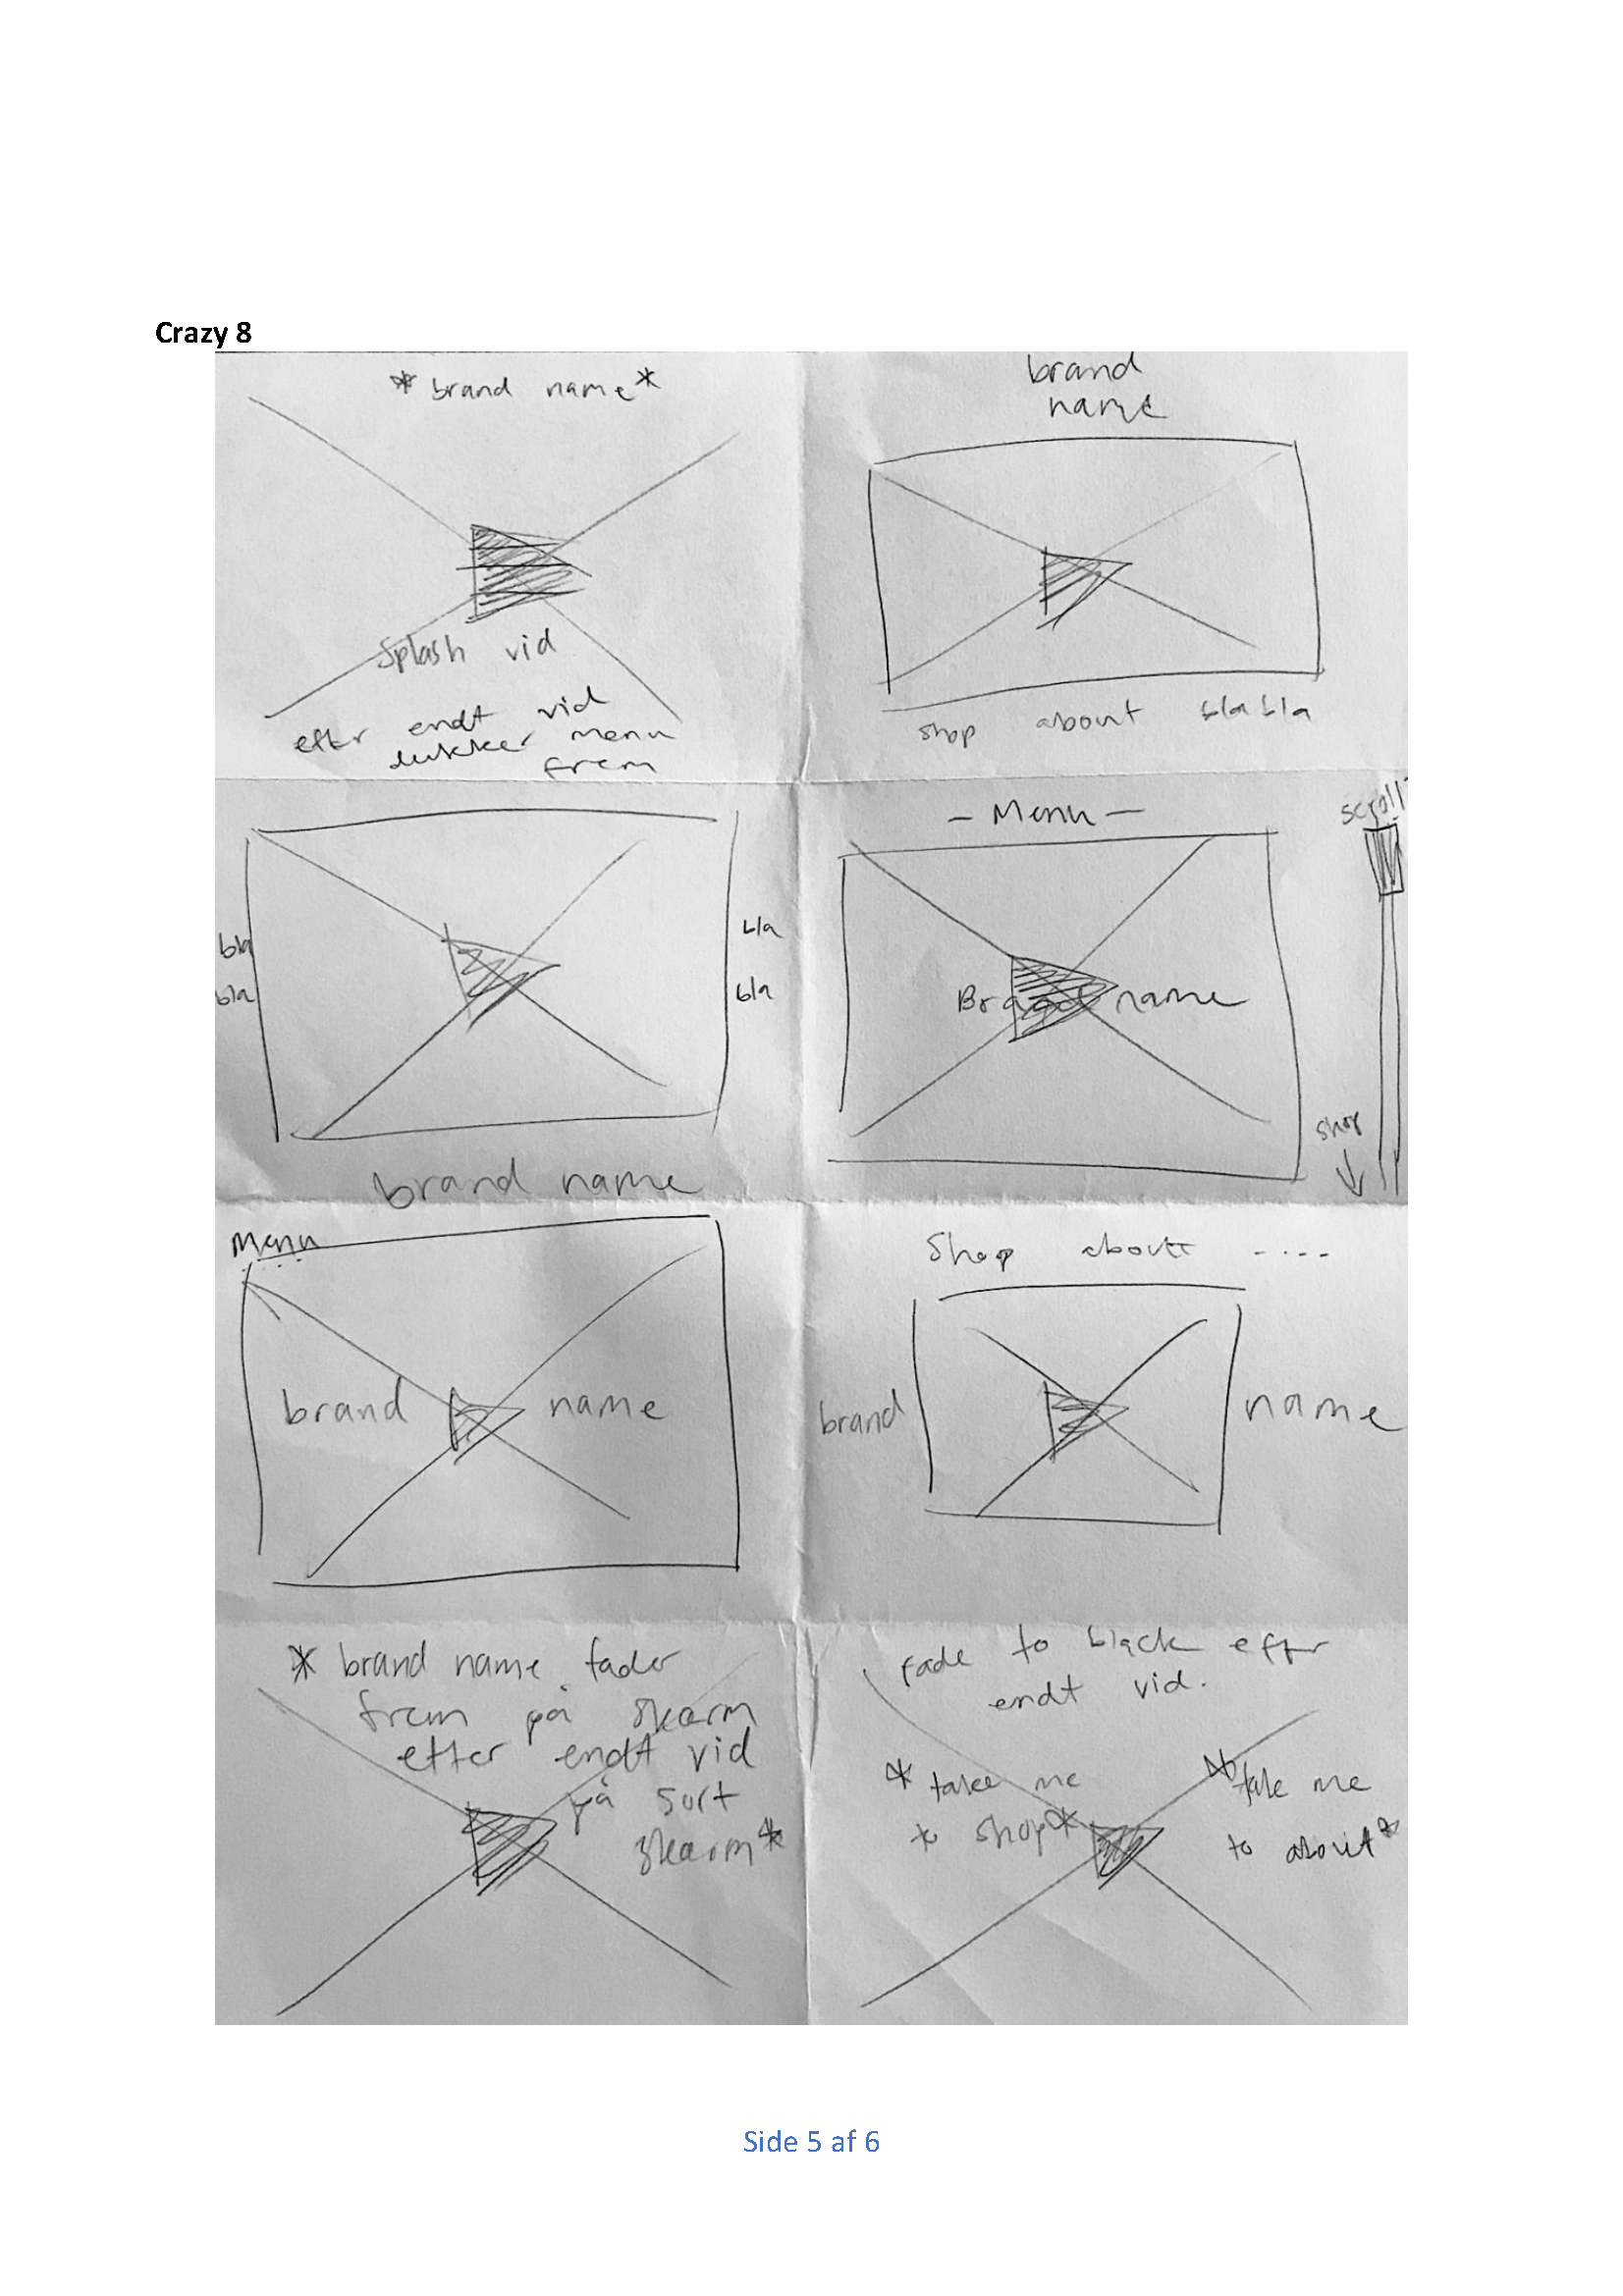 Crazy 8
* brand name *
Splash vid
efter endt vid
dukker menu
frem
brand
name
shop about bla bla
bla
bla
bla
bla
brand name
- Menu -
scroll
Brand name
shop
Menu
brand name
Shop about ....
brand name
* brand name fader
frem på skærm
efter endt vid
på sort
skærm *
fade to black efter
endt vid.
* take me
to shop *
* take me
to about *
Side 5 af 6